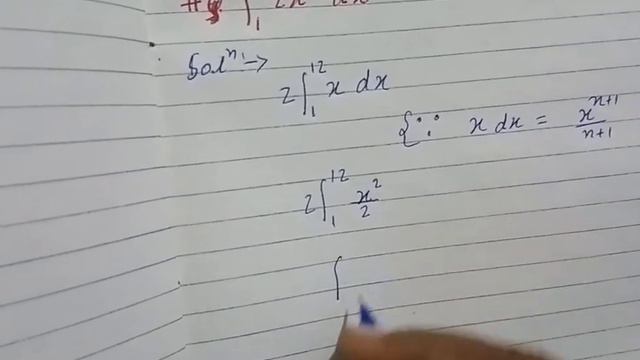 ∫₁ 2x dx
Solⁿ:→
2∫₁¹² x dx
{∵ x dx = xⁿ⁺¹/n+1
2∫₁¹² x²/2
∫